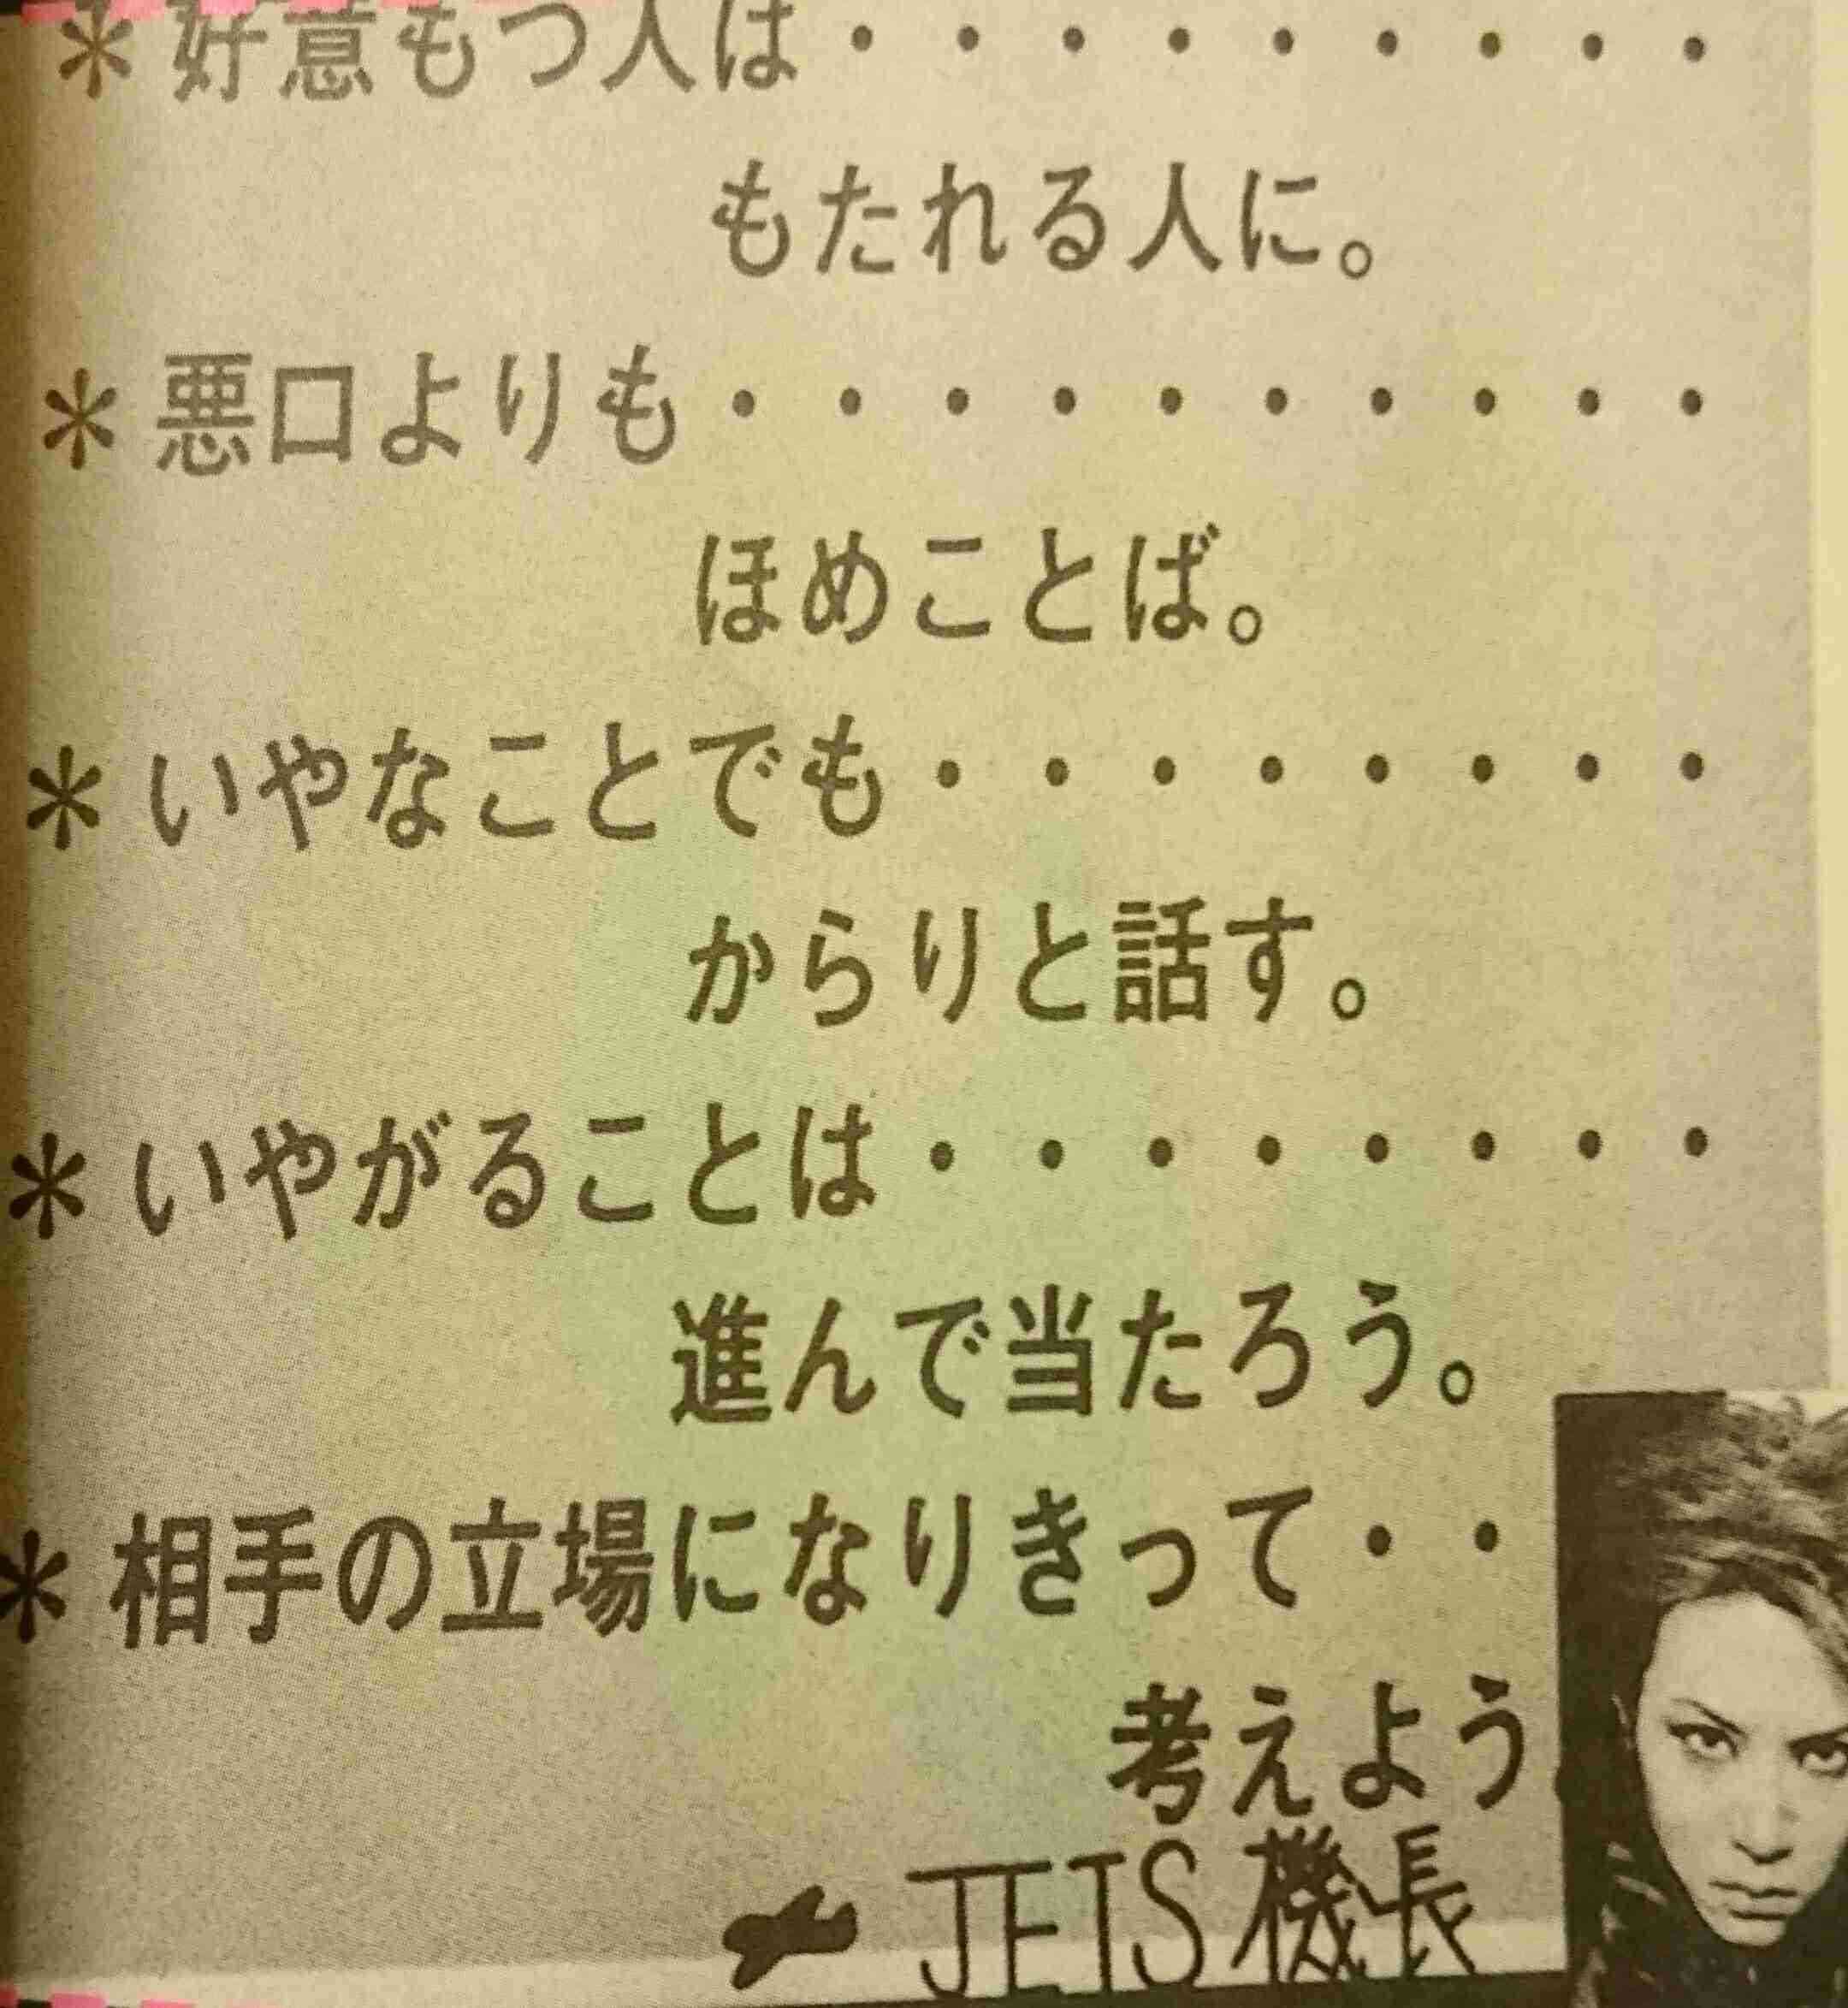 ＊好意もつ人は・・・・・・・・・
もたれる人に。
＊悪口よりも・・・・・・・・・・
ほめことば。
＊いやなことでも・・・・・・・・
からりと話す。
＊いやがることは・・・・・・・・
進んで当たろう。
＊相手の立場になりきって・・
考えよう
JETS機長